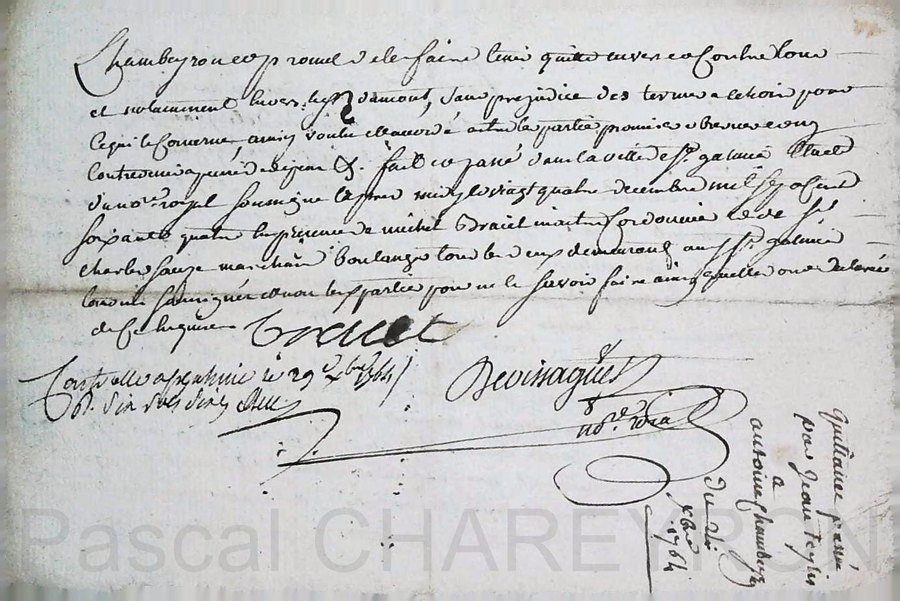 Chambeyron et promet de le faire tenir quitte envers et contre tous
et notamment envers led. damont, sans prejudice des termes a echoir pour
ce qui le concerne, ainsi voulu et accordé entre les parties promis obser
contre peine dépens &. fait et passé dans la ville de St. galmier Etude
du no.re royal soussigné le après midy le vingt quatre decembre mil sept cent
soixante quatre en presence de michel Bruiet maitre Cordonnier et de Sr.
charles marchand Boulanger tous les deux demeurants aud. St. galmier
temoins soussignés et non les parties pour ne le savoir faire ainsi qu'elles ont declaré
de ce enquises
Controlle a St. galmier le 29 xbre 1764
Rd. dix sols
Devissaguet
no.re royal
Quittance passée
par Jean
a
antoine Chambeyron
du 24
xbre
1764
Pascal CHAREYRON